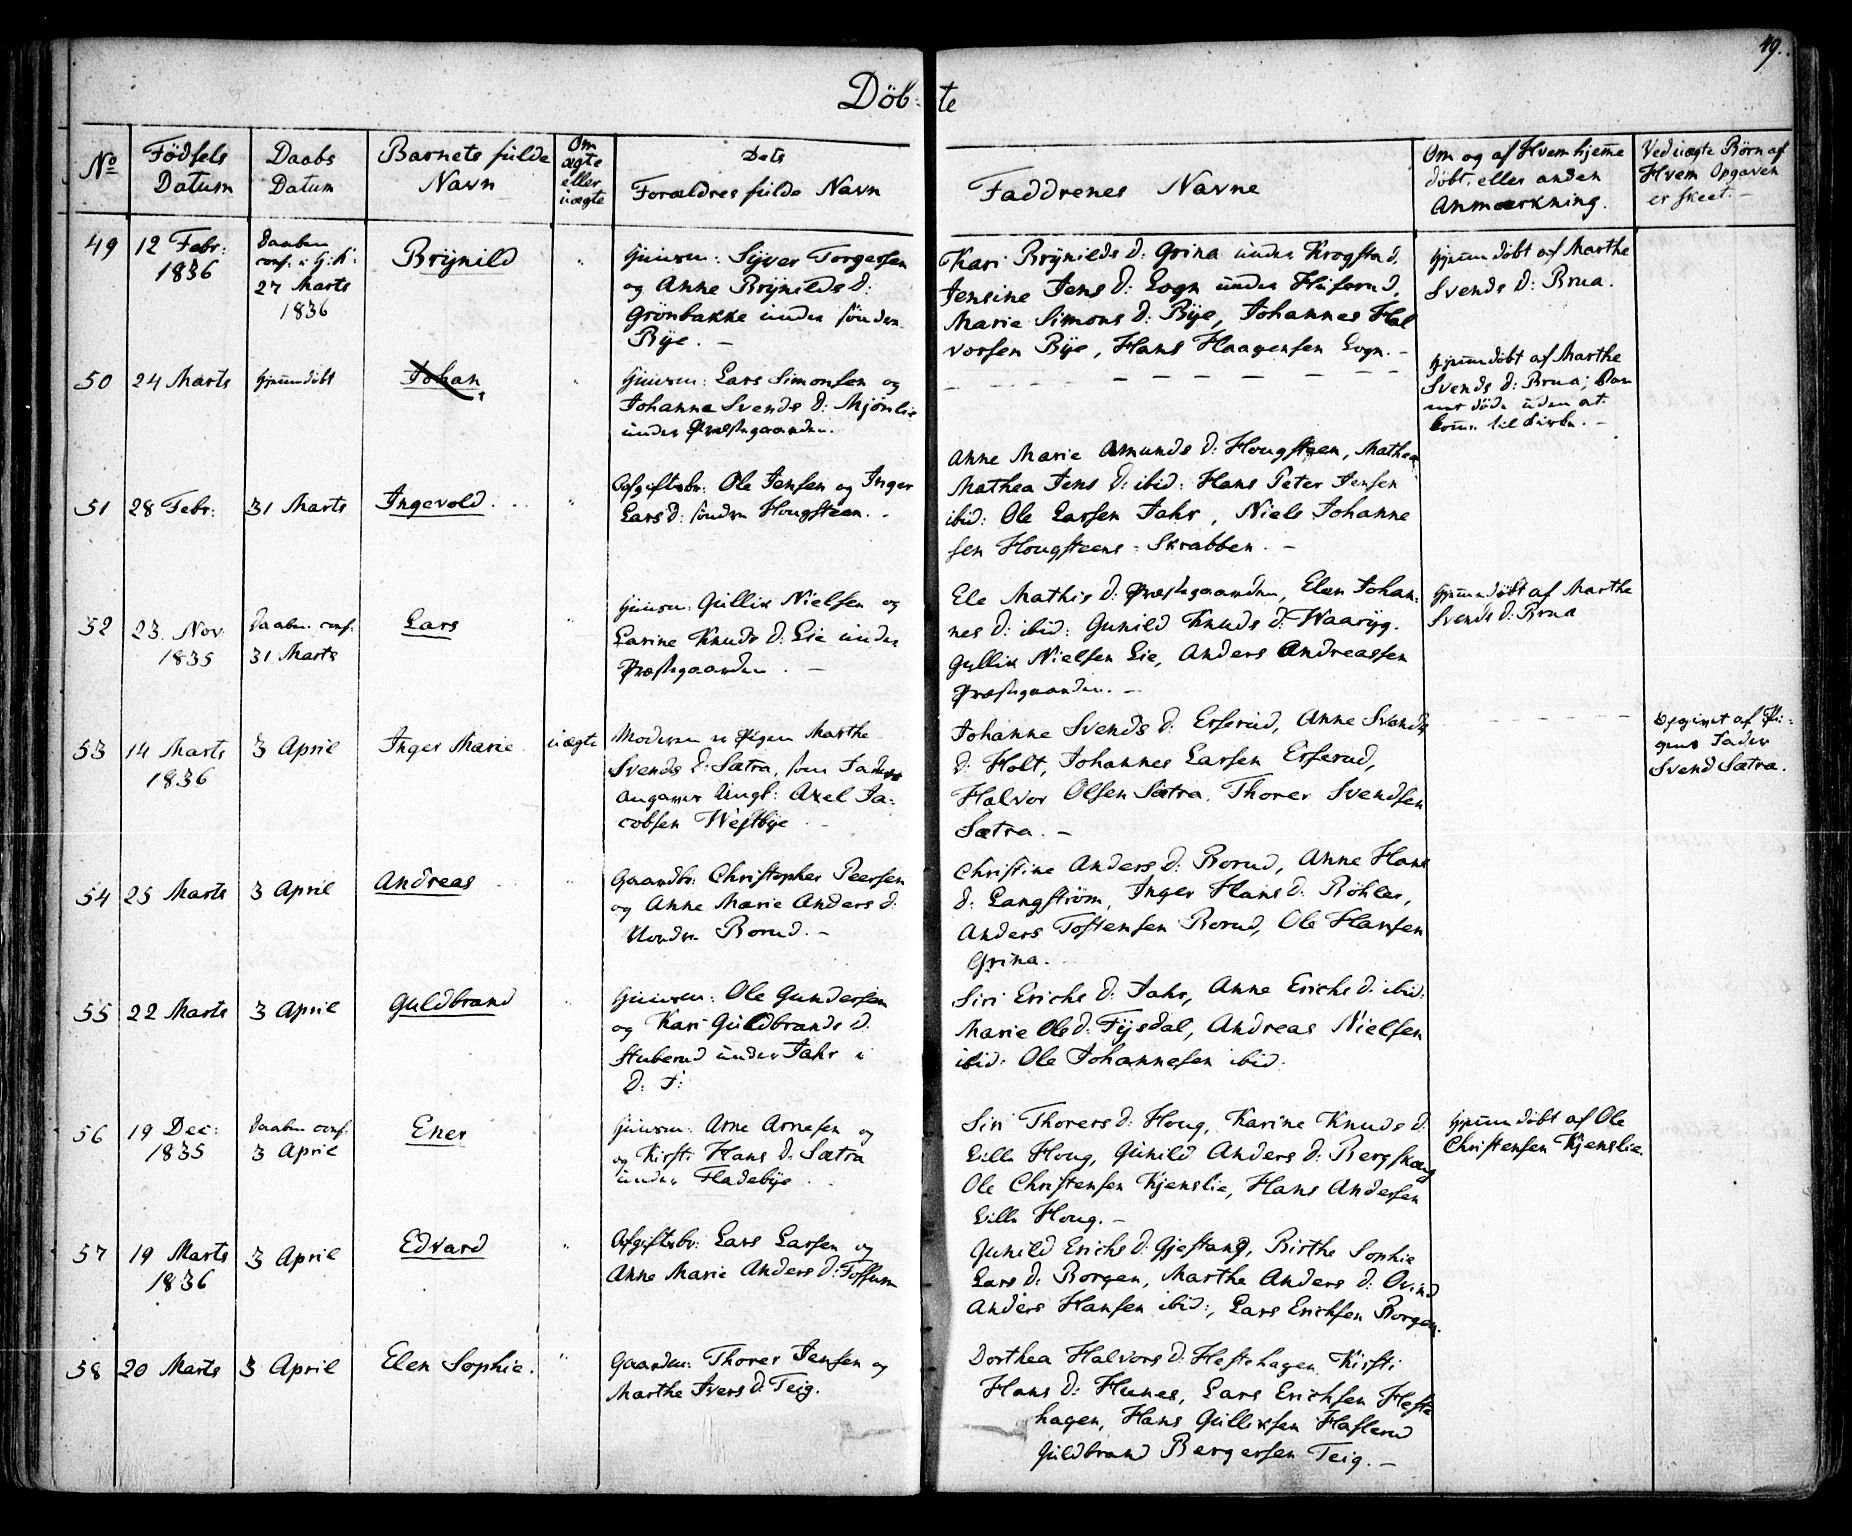 49.
Döb- te
No
Födsels Datum
Daabs Datum
Barnets fulde Navn
Om ægte eller uægte
Dets Forældres fulde Navn
Faddrenes Navne
Om og af Hvem hjemme döbt, eller anden Anmærkning.
Ved uægte Börn af Hvem Opgaven er skeet. -
49 12 Febr: 1836
Daaben conf. i G: K: 27 Marts 1836
Brynild
Huusm: Syver Torgersen
og Anne Brynilds D:
Grönbakke under söndre
Bye. -
Kari Brynilds D: Grina under Krogstad,
Jensine Jens D: Sogn under Huserud,
Marie Simons D: Bye, Johannes Hal
vorsen Bye, Hans Haagensen Sogn. -
Hjemmedöbt af Marthe
Svends D: Brua.
50 24 Marts
Hjemmedöbt
Johan
Huusm: Lars Simonsen og
Johanne Svends D: Mjönlie
under Præstegaarden.
Hjemmedöbt af Marthe
Svends D: Brua; Bar
net döde uden at
komme til Kirke. -
51 28 Febr:
31 Marts
Ingevold.
Afgiftsbr: Ole Jensen og Inger
Lars D: söndre Hougsteen. -
Anne Marie Amunds D: Hougsteen, Mathea
Mathea Jens D: ibid: Hans Peter Jensen
ibid: Ole Larsen Jahr, Niels Johanne
sen Hougsteens-Skrabben. -
52 23. Nov: 1835
Daaben conf: 31 Marts
Lars
Huusm: Gullik Nielsen og
Larine Knuds D: Lie under
Præstegaarden. -
Ele Mathis D: Præstegaarden, Elen Johan:
nes D: ibid: Gunild Knuds D: Waaryg.
Gullik Nielsen Lie, Anders Andreassen
Præstegaarden. -
Hjemmedöbt af Marthe
Svends D: Brua
53 14 Marts 1836
3 April
Inger Marie.
uægte
Moderen er Pigen Marthe
Svends D: Sætra, som Fader
angaves Ungk: Axel Ja:
cobsen Westbye
Johanne Svends D: Erserud, Anne Svends
D: Holt, Johannes Larsen Erserud,
Halvor Olsen Sætra. Thorer Svendsen
Sætra. -
Opgivet af Pi-
gens Fader
Svend Sætra.
54 25 Marts
3 April
Andreas
Gaardbr: Christopher Peersen
og Anne Marie Anders D:
Nordre Borud. -
Christine Anders D: Borud, Anne Hans
D: Langström, Inger Hans D: Böhler,
Anders Tostensen Borud, Ole Hansen
Grina.
55 22 Marts
3 April
Guldbrand
Huusm: Ole Gundersen
og Kari Guldbrands D:
Stuberud under Jahr i
D: F:
Siri Erichs D: Jahr, Anne Erichs D: ibid:
Marie Ols D: Fysdal, Andreas Nielsen
ibid: Ole Johannesen ibid:
56 19 Dec: 1835
Daaben conf: 3 April
Ener
Huusm: Arne Arnesen og
og Kirsti Hans D: Sætra
under Fladebye
Siri Thorers D: Houg, Karine Knuds D:
Lille Houg, Gunild Anders D: Bergskoug
Ole Christensen Kjenslie, Hans Andersen
Lille Houg. -
Hjemmedöbt af Ole
Christensen Kjenslie.
57 19 Marts 1836
3 April
Edvard
Afgiftsbr: Lars Larsen og
Anne Marie Anders D: Fossum
Gunild Erichs D: Gjestang, Birthe Sophie
Lars D: Borgen, Marthe Anders D: Ovind
Anders Hansen ibid:, Lars Erichsen Borgen.
58 20 Marts
3 April
Elen Sophie.
Gaardm: Thorer Jensen og
Marthe Ivers D: Teig.
Dorthea Halvors D: Heftehagen Kirsti
Hans D: Hunes, Lars Erichsen Hefte
hagen, Hans Gulliksen Haslerud
Guldbrand Bergersen Teig. -